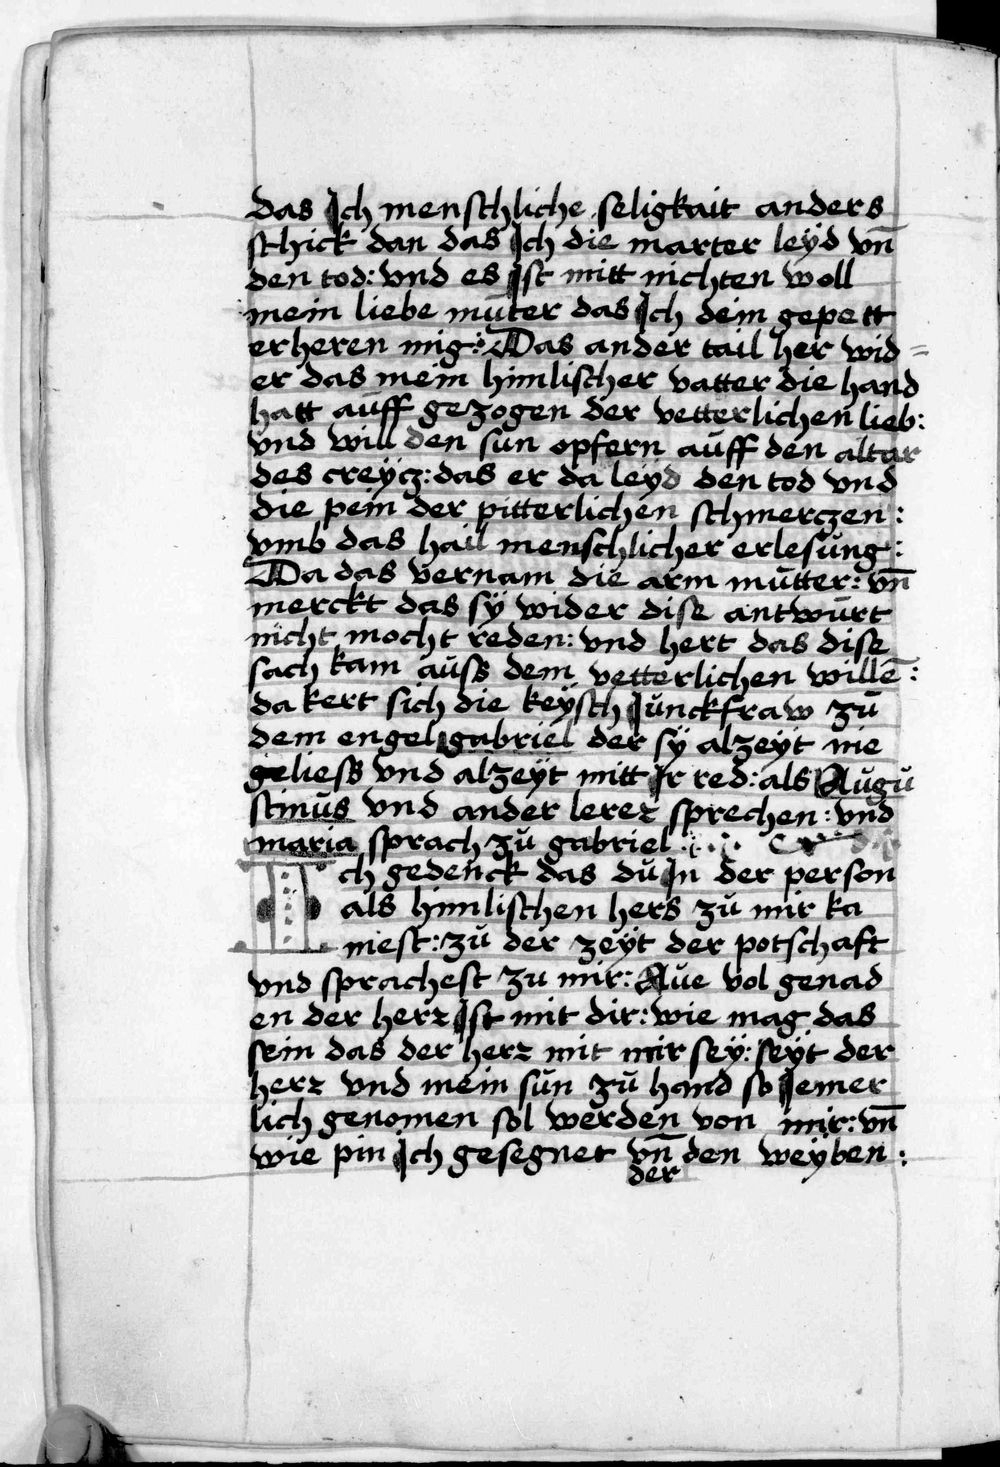 das Ich menschliche seligkait anders
schick dan das Ich die marter leÿd vn̄
den tod: vnd es Ist mitt nichten woll
mein liebe mūter das Ich dein gepett
erheren mig: Das ander tail her wid=
er das mein himlischer vatter die hand
hatt aūff gezogen der vetterlichen lieb:
vnd will den sun opfern aūff den altar
des creÿcz: das er da leyd den tod vnd
die pein der pitterlichen schmerczen:
vmb das hail menschlicher erlesūng:
Da das vernam die arm mūtter: vn̄
merckt das sÿ wider dise antwūrt
nicht mocht reden: vnd hert das dise
sach kam aūss dem vetterlichen willē:
da kert sich die keÿsch Jūnckfraw zū
dem engel gabriel der sÿ alzeÿt nie
geliess vnd alzeÿt mitt Ir red: als Augū
stinūs vnd ander lerer sprechen: vnd
maria sprach zū gabriel
Ich gedenck das dū In der person
als himlischen hers zū mir ka
mest: zū der zeÿt der potschaft
vnd sprachest zu mir: Aue vol genad
en der herr Ist mit dir: wie mag das
sein das der herr mit mir sey: seÿt der
herr vnd mein sūn zū hand so Jemer
lich genomen sol werden von mir: vn̄
wie pin Ich gesegnet vn̄ den weÿben:
der